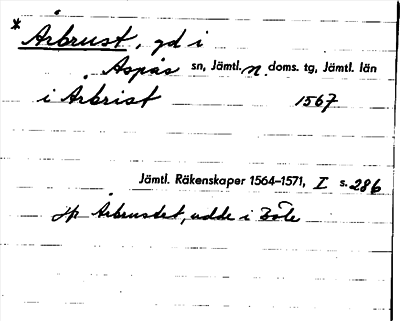 * Årbrust, gd i
Aspås sn, Jämtl. n. doms. tg, Jämtl. län
i Årbrist 1567
Jämtl. Räkenskaper 1564–1571, I s. 286
jfr Årbrusdet, udde i Böle